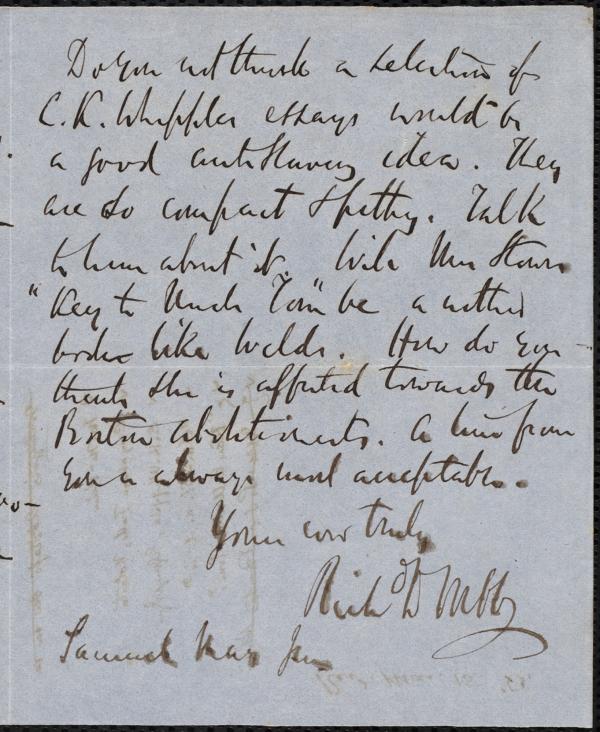 Do you not think a selection of
C. K. Whipples essays would be
a good antislavery idea. They
are so compact & pithy. Talk
to him about it. Will Mrs Stowes
"Key to Uncle Tom" be a
book like Welds. How do you
think she is affected towards the
Boston abolitionists. A line from
you is always most acceptable.
Yours ever truly
Rich D Webb
Samuel May Jun